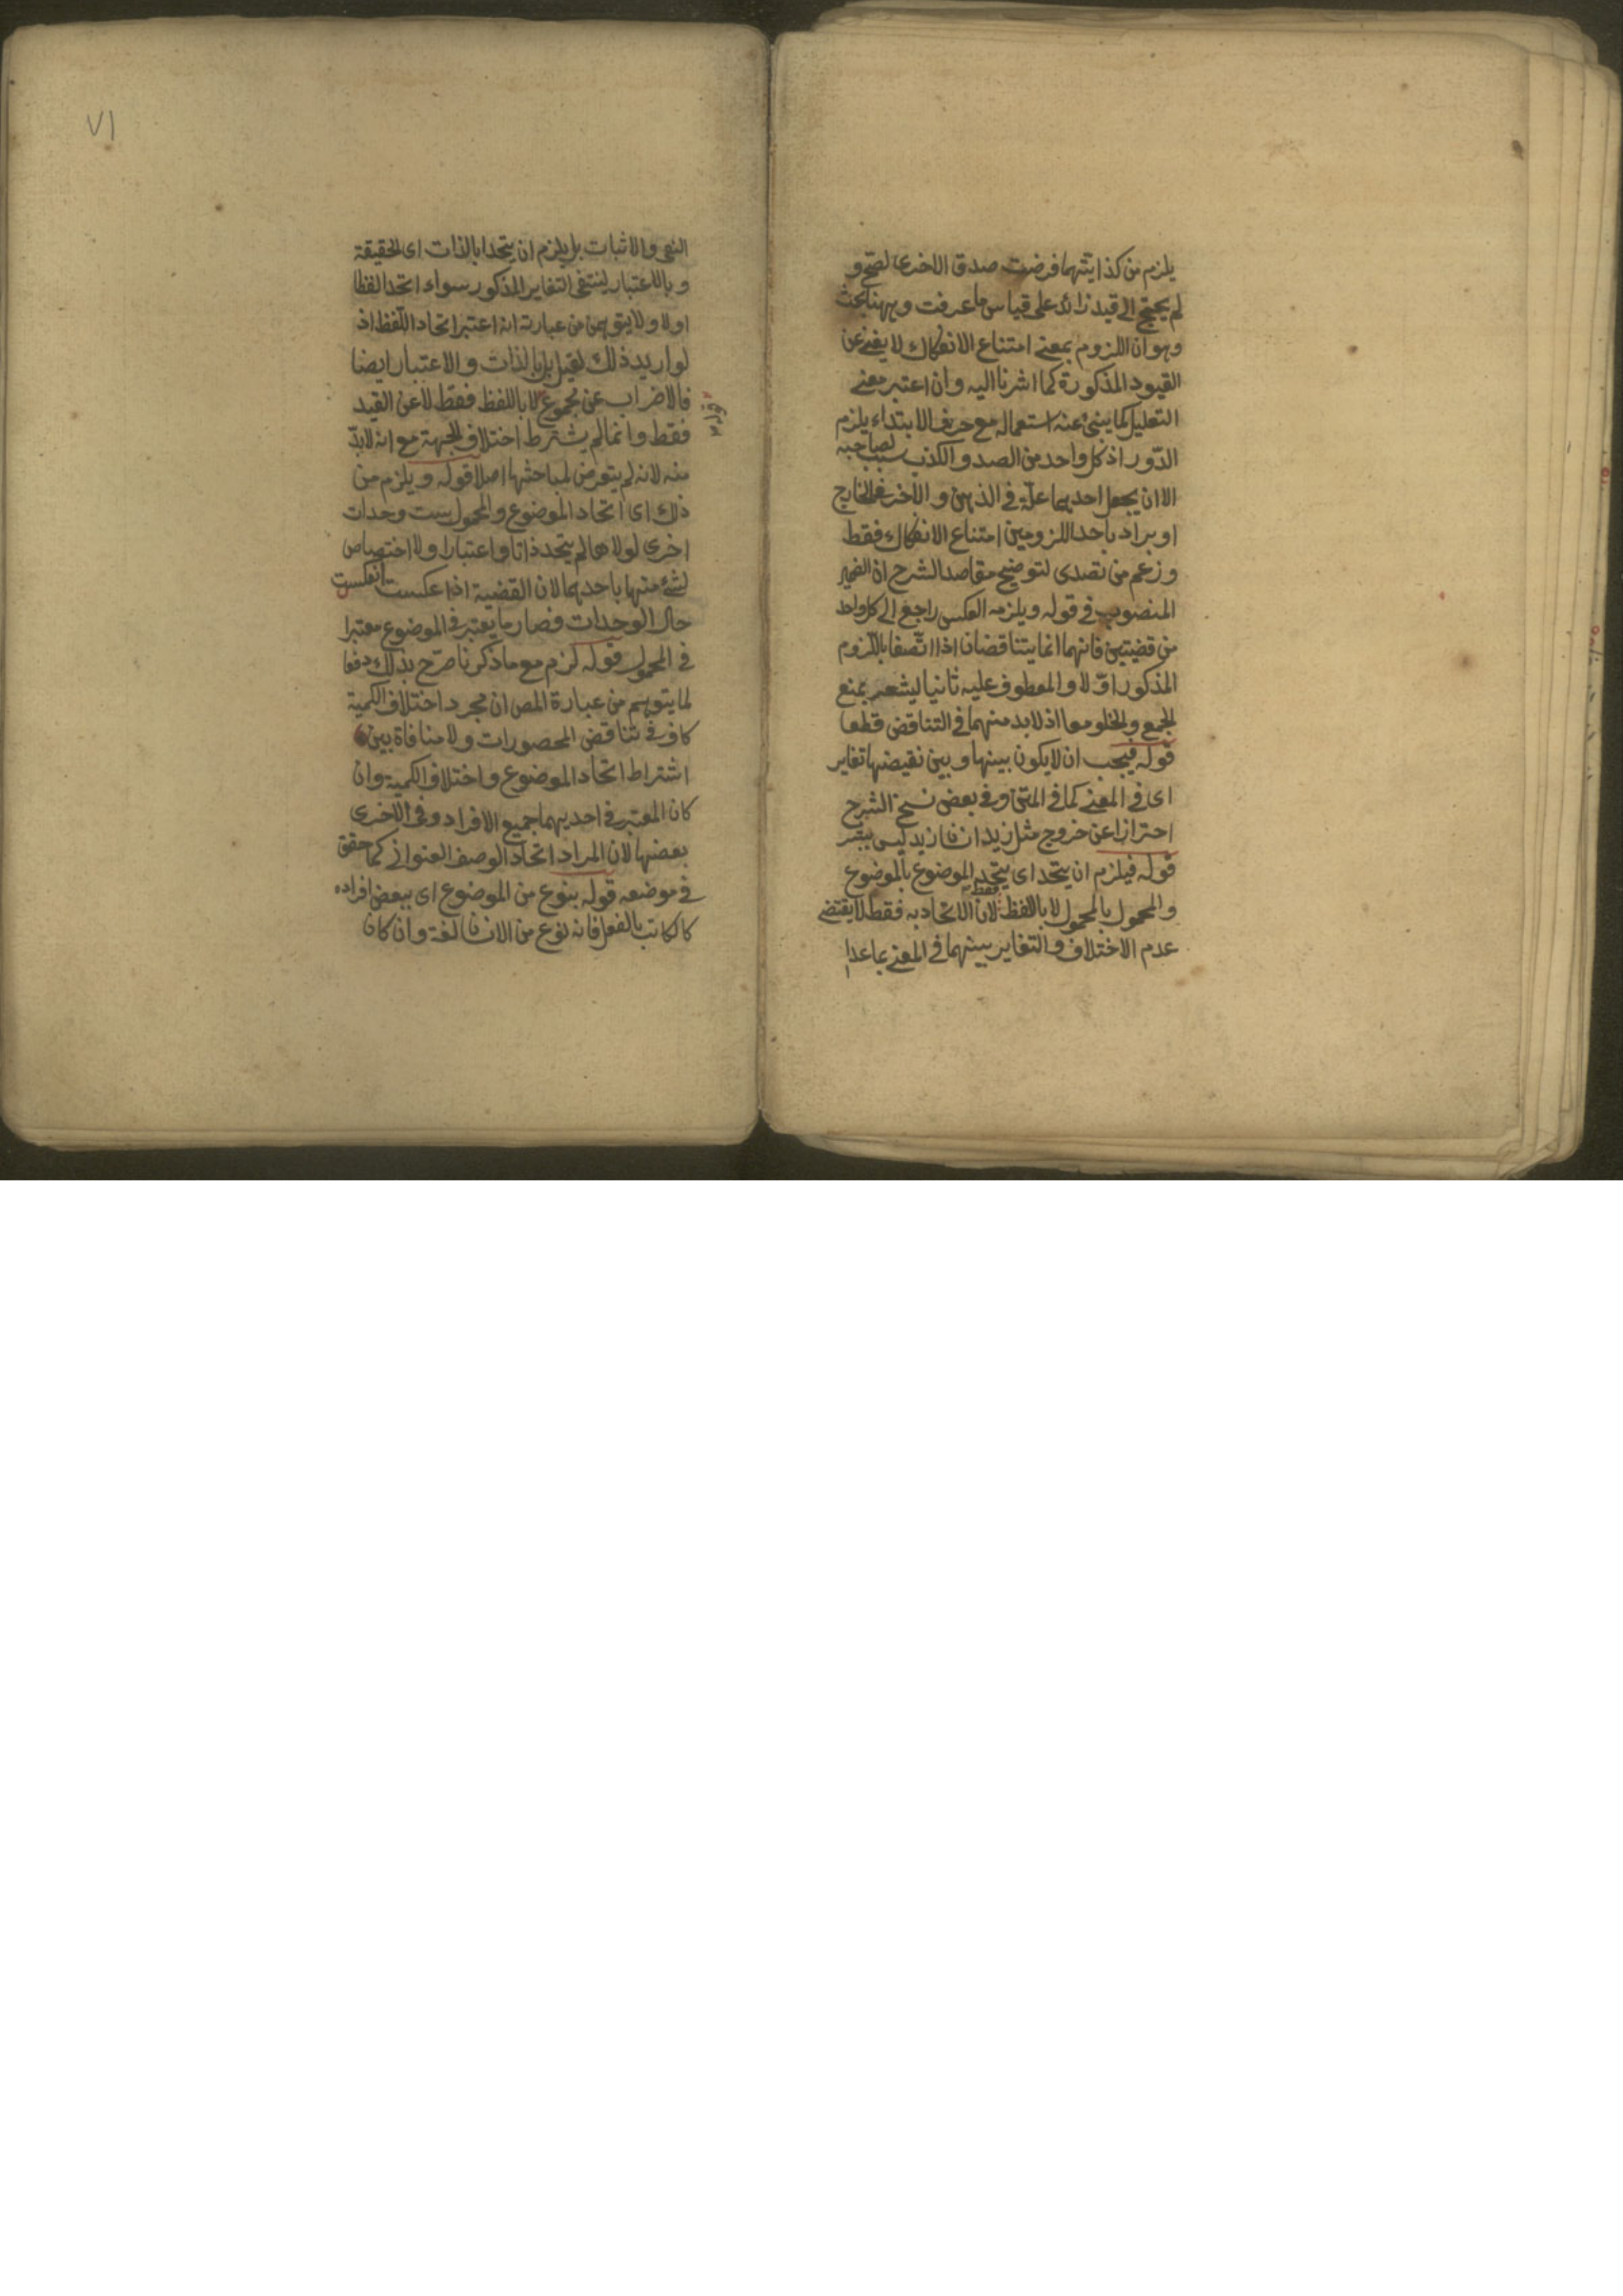 يلزم من كذا يتهما فرضت صدق الاخرى لصح و
لم يحتج الى قيد زائد على قياس ما عرفت وههنا بحث
وهو ان اللزوم بمعنى امتناع الانفكاك لا يغنى عن
القيود المذكورة كما اشرنا اليه وان اعتبر معنى
التعليل كما ينبئ عنه استعماله مع حرف الابتداء يلزم
الدور اذ كل واحد من الصدق والكذب سبب لصاحبه
الا ان يجعل احديهما علة فى الذهن والاخر فى الخارج
او يراد باحد اللزومين امتناع الانفكاك فقط
وزعم من تصدى لتوضيح مقاصد الشرح ان الضمير
المنصوب فى قوله ويلزمه العكس راجع الى كل واحد
من قضيتين فانهما انما يتناقضان اذا اتصفا باللزوم
المذكور اولا والمعطوف عليه ثانيا ليشعر بمنع
الجمع والخلو معا اذ لا بد منهما فى التناقض قطعا
قوله فيجب ان لا يكون بينها وبين نقيضها تغاير
اى فى المعنى كما فى المتن وفى بعض نسخ الشرح
احترازا عن خروج مثل زيد انسان زيد ليس ببشر
قوله فيلزم ان يتحد اى يتحد الموضوع بالموضوع
والمحمول بالمحمول لا باللفظ فقط لان الاتحاد به فقط لا يقتضى
عدم الاختلاف والتغاير بينهما فى المعنى بما عدا
٧١
النفى والاثبات بل يلزم ان يتحدا بالذات اى الحقيقة
وبالاعتبار لينتفى التغاير المذكور سواء اتحد الفظا
اولا ولا يتوهمن من عبارته انه اعتبر اتحاد اللفظ اذ
لو اريد ذلك لقيل بل بالذات والاعتبار ايضا
فالاضراب عن مجموع لا باللفظ فقط لا عن القيد
فقط وانما لم يشترط اختلاف الجهة مع انه لا بد
منه لانه لم يتعرض لمباحثها اصلا قوله ويلزم من
ذلك اى اتحاد الموضوع والمحمول ست وحدات
اخرى لولاها لم يتحد ذاتا واعتبارا ولا اختصاص
لشئ منها باحدهما لان القضية اذا عكست انعكست
حال الوحدات فصار ما يعتبر فى الموضوع معتبرا
فى المحمول قوله لزم مع ما ذكرنا صرح بذلك دفعا
لما يتوهم من عبارة المص ان مجرد اختلاف الكمية
كاف فى تناقض المحصورات ولا منافاة بين
اشتراط اتحاد الموضوع واختلاف الكمية وان
كان المعتبر فى احديهما جميع الافراد وفى الاخرى
بعضها لان المراد اتحاد الوصف العنوانى كما حقق
فى موضعه قوله بنوع من الموضوع اى ببعض افراده
كالكاتب بالفعل فانه نوع من الانسان لغة وان كان